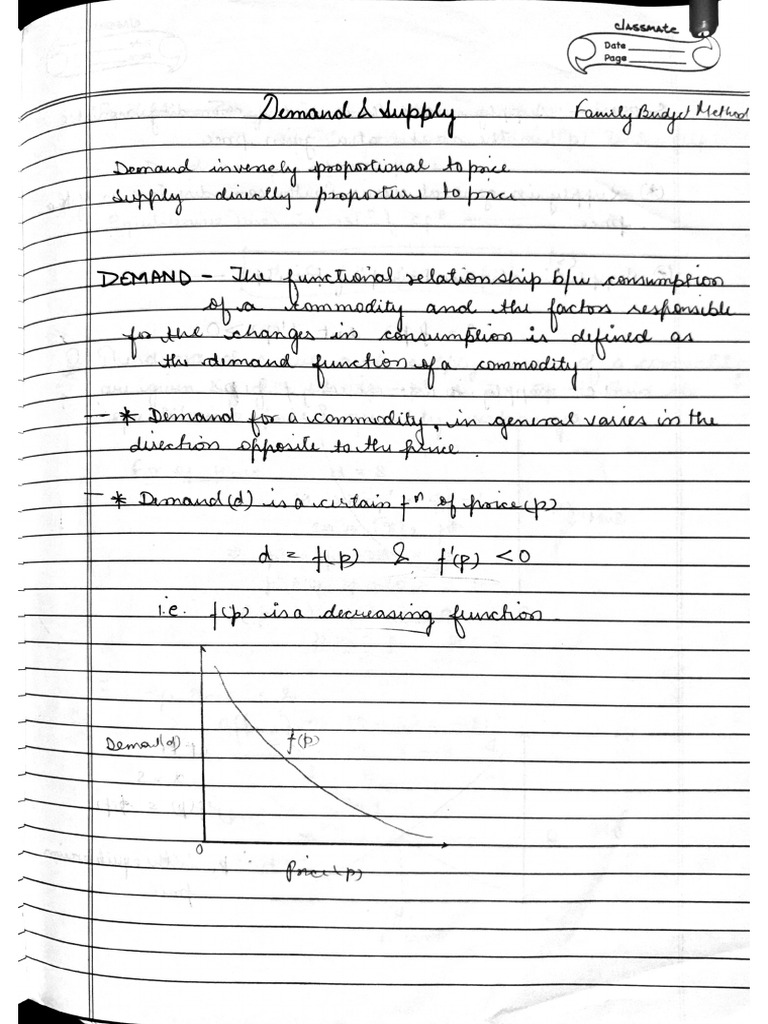 classmate
Date
Page
Demand & Supply
Family Budget Method
Demand inversely proportional to price
Supply directly proportion to price
DEMAND - The functional relationship b/w consumption
of a commodity and the factors responsible
for the changes in consumption is defined as
the demand function of a commodity.
- * Demand for a commodity, in general varies in the
direction opposite to the price.
- * Demand (d) is a certain fⁿ of price (p)
d = f(p) & f'(p) < 0
i.e. f(p) is a decreasing function.
Demad(d)
f(p)
0
Price (p)